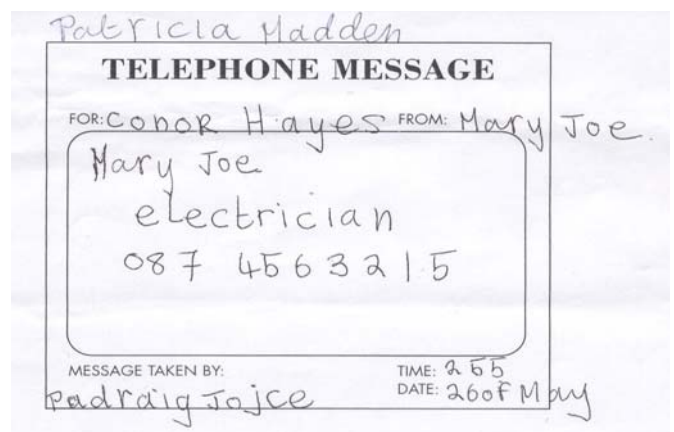 Patricia Madden
TELEPHONE MESSAGE
FOR: Conor Hayes FROM: Mary Joe.
Mary Joe
electrician
087 4563215
MESSAGE TAKEN BY: TIME: 255
Padraig Jojce DATE: 26 of May